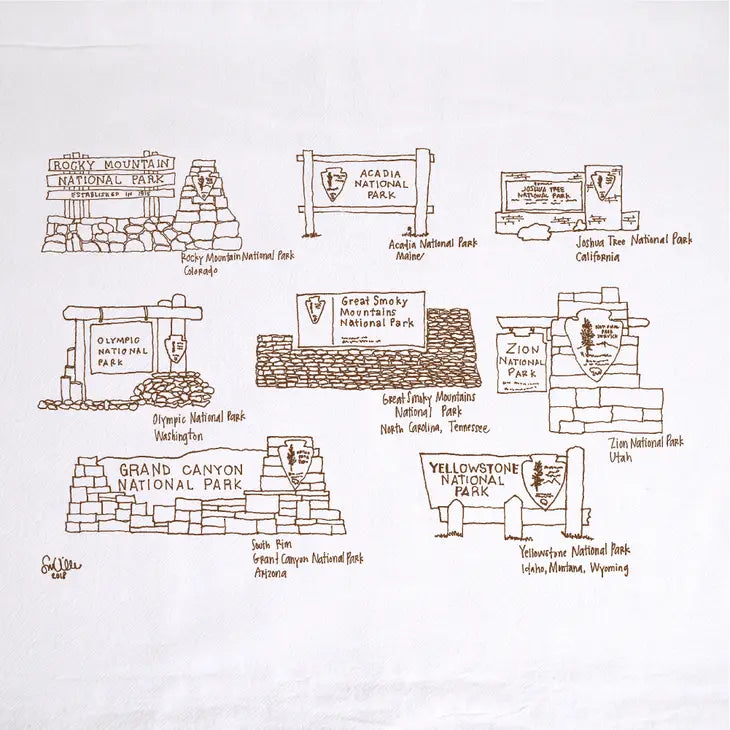 ROCKY MOUNTAIN
NATIONAL PARK
ESTABLISHED IN 1915
Rocky Mountain National Park
Colorado
ACADIA
NATIONAL
PARK
Acadia National Park
Maine
JOSHUA TREE
NATIONAL PARK
Joshua Tree National Park
California
OLYMPIC
NATIONAL
PARK
Olympic National Park
Washington
Great Smoky
Mountains
National Park
Great Smoky Mountains
National Park
North Carolina, Tennessee
ZION
NATIONAL
PARK
NATIONAL
PARK
SERVICE
Zion National Park
Utah
GRAND CANYON
NATIONAL PARK
South Rim
Grand Canyon National Park
Arizona
YELLOWSTONE
NATIONAL
PARK
Yellowstone National Park
Idaho, Montana, Wyoming
2018